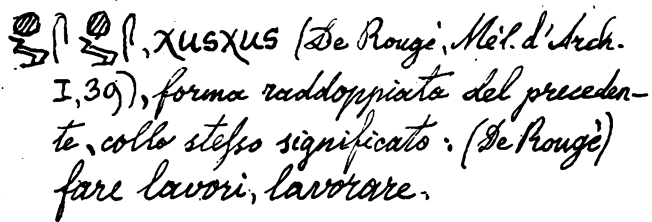 𓐍𓅱𓋴𓀨𓋴𓐍𓅱𓋴𓀨𓋴, χusχus (De Rougè, Mél. d'Arch.
I, 39), forma raddoppiata del preceden-
te, collo stesso significato: (De Rougè)
fare lavori, lavorare.